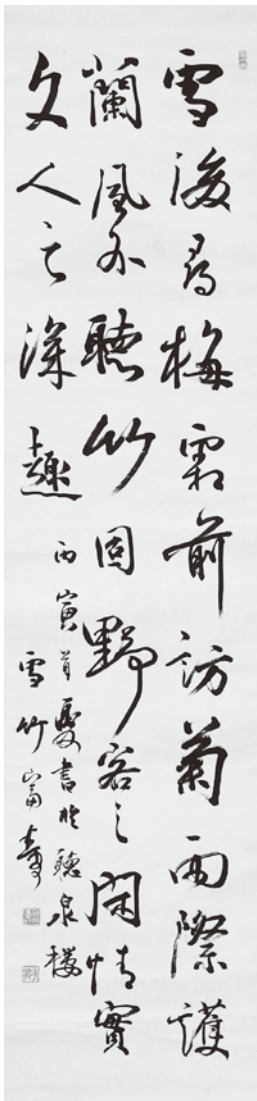 雪後尋梅霜前訪菊雨際護
蘭風外聽竹固野客之閑情實
文人之深趣
丙寅首夏書於聽泉樓
雪竹富壽